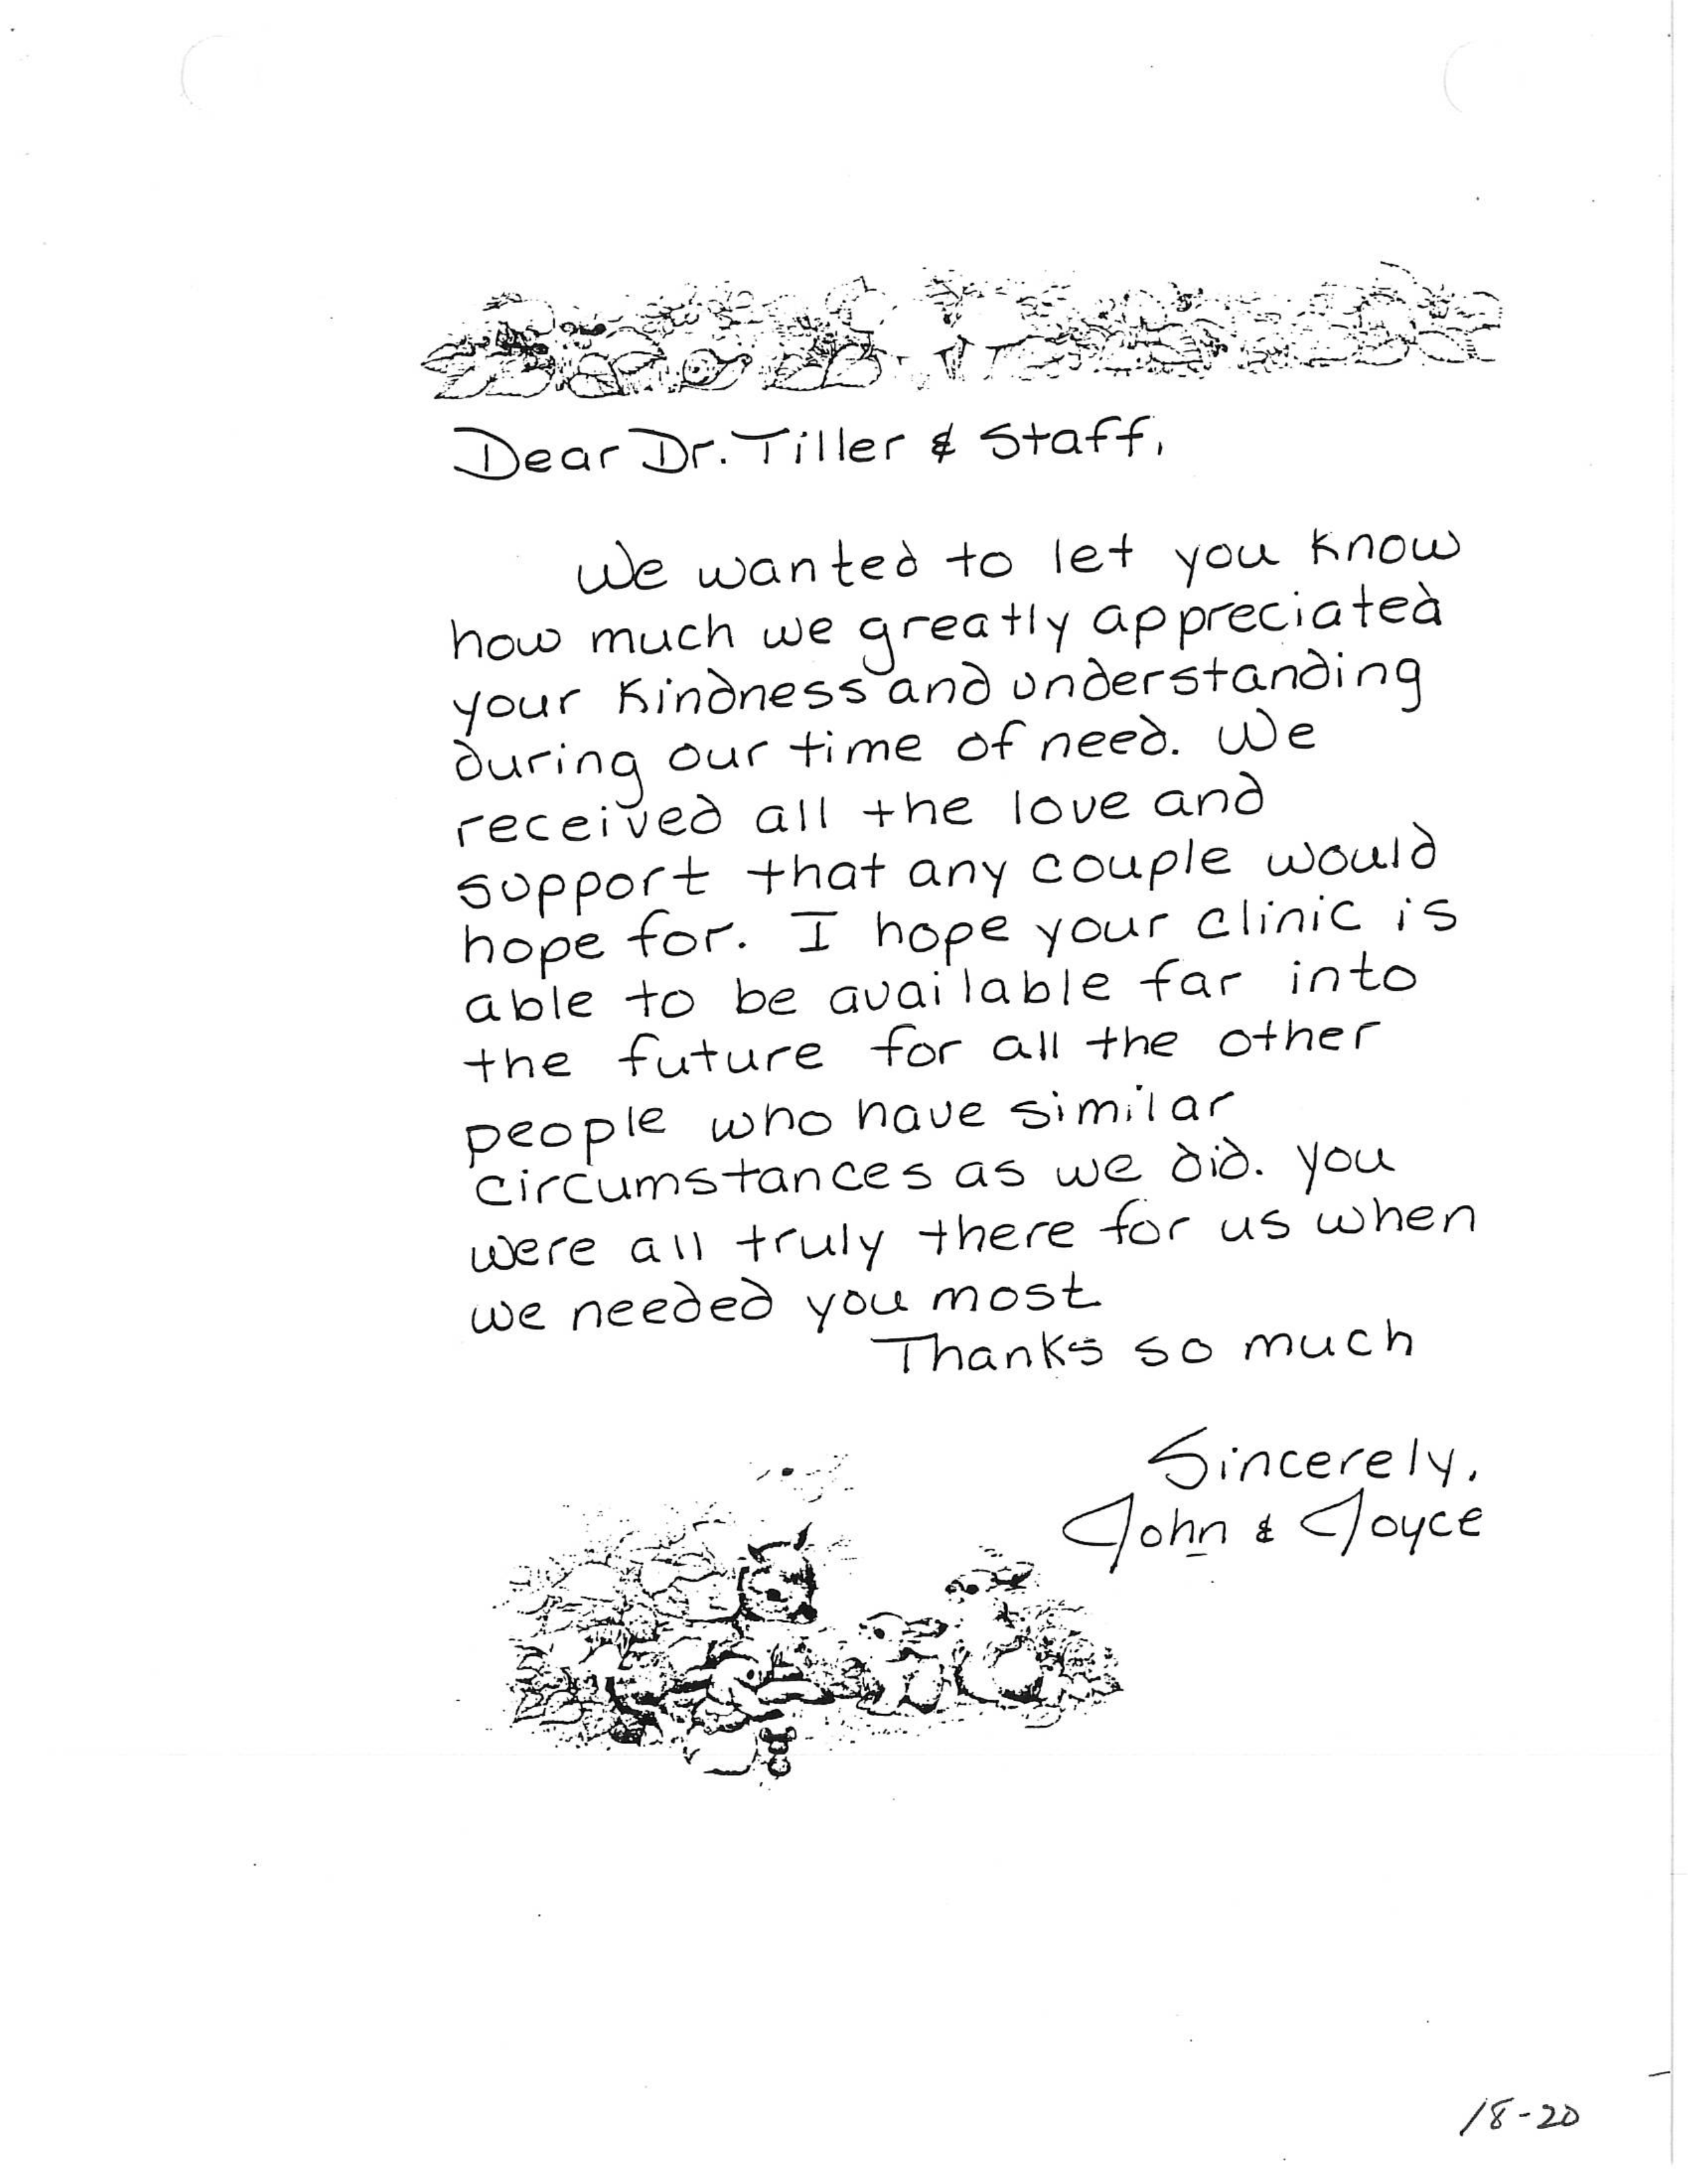 Dear Dr. Tiller & Staff,
We wanted to let you know
how much we greatly appreciated
your kindness and understanding
during our time of need. We
received all the love and
support that any couple would
hope for. I hope your clinic is
able to be available far into
the future for all the other
people who have similar
circumstances as we did. you
were all truly there for us when
we needed you most
Thanks so much
Sincerely,
John & Joyce
18-20